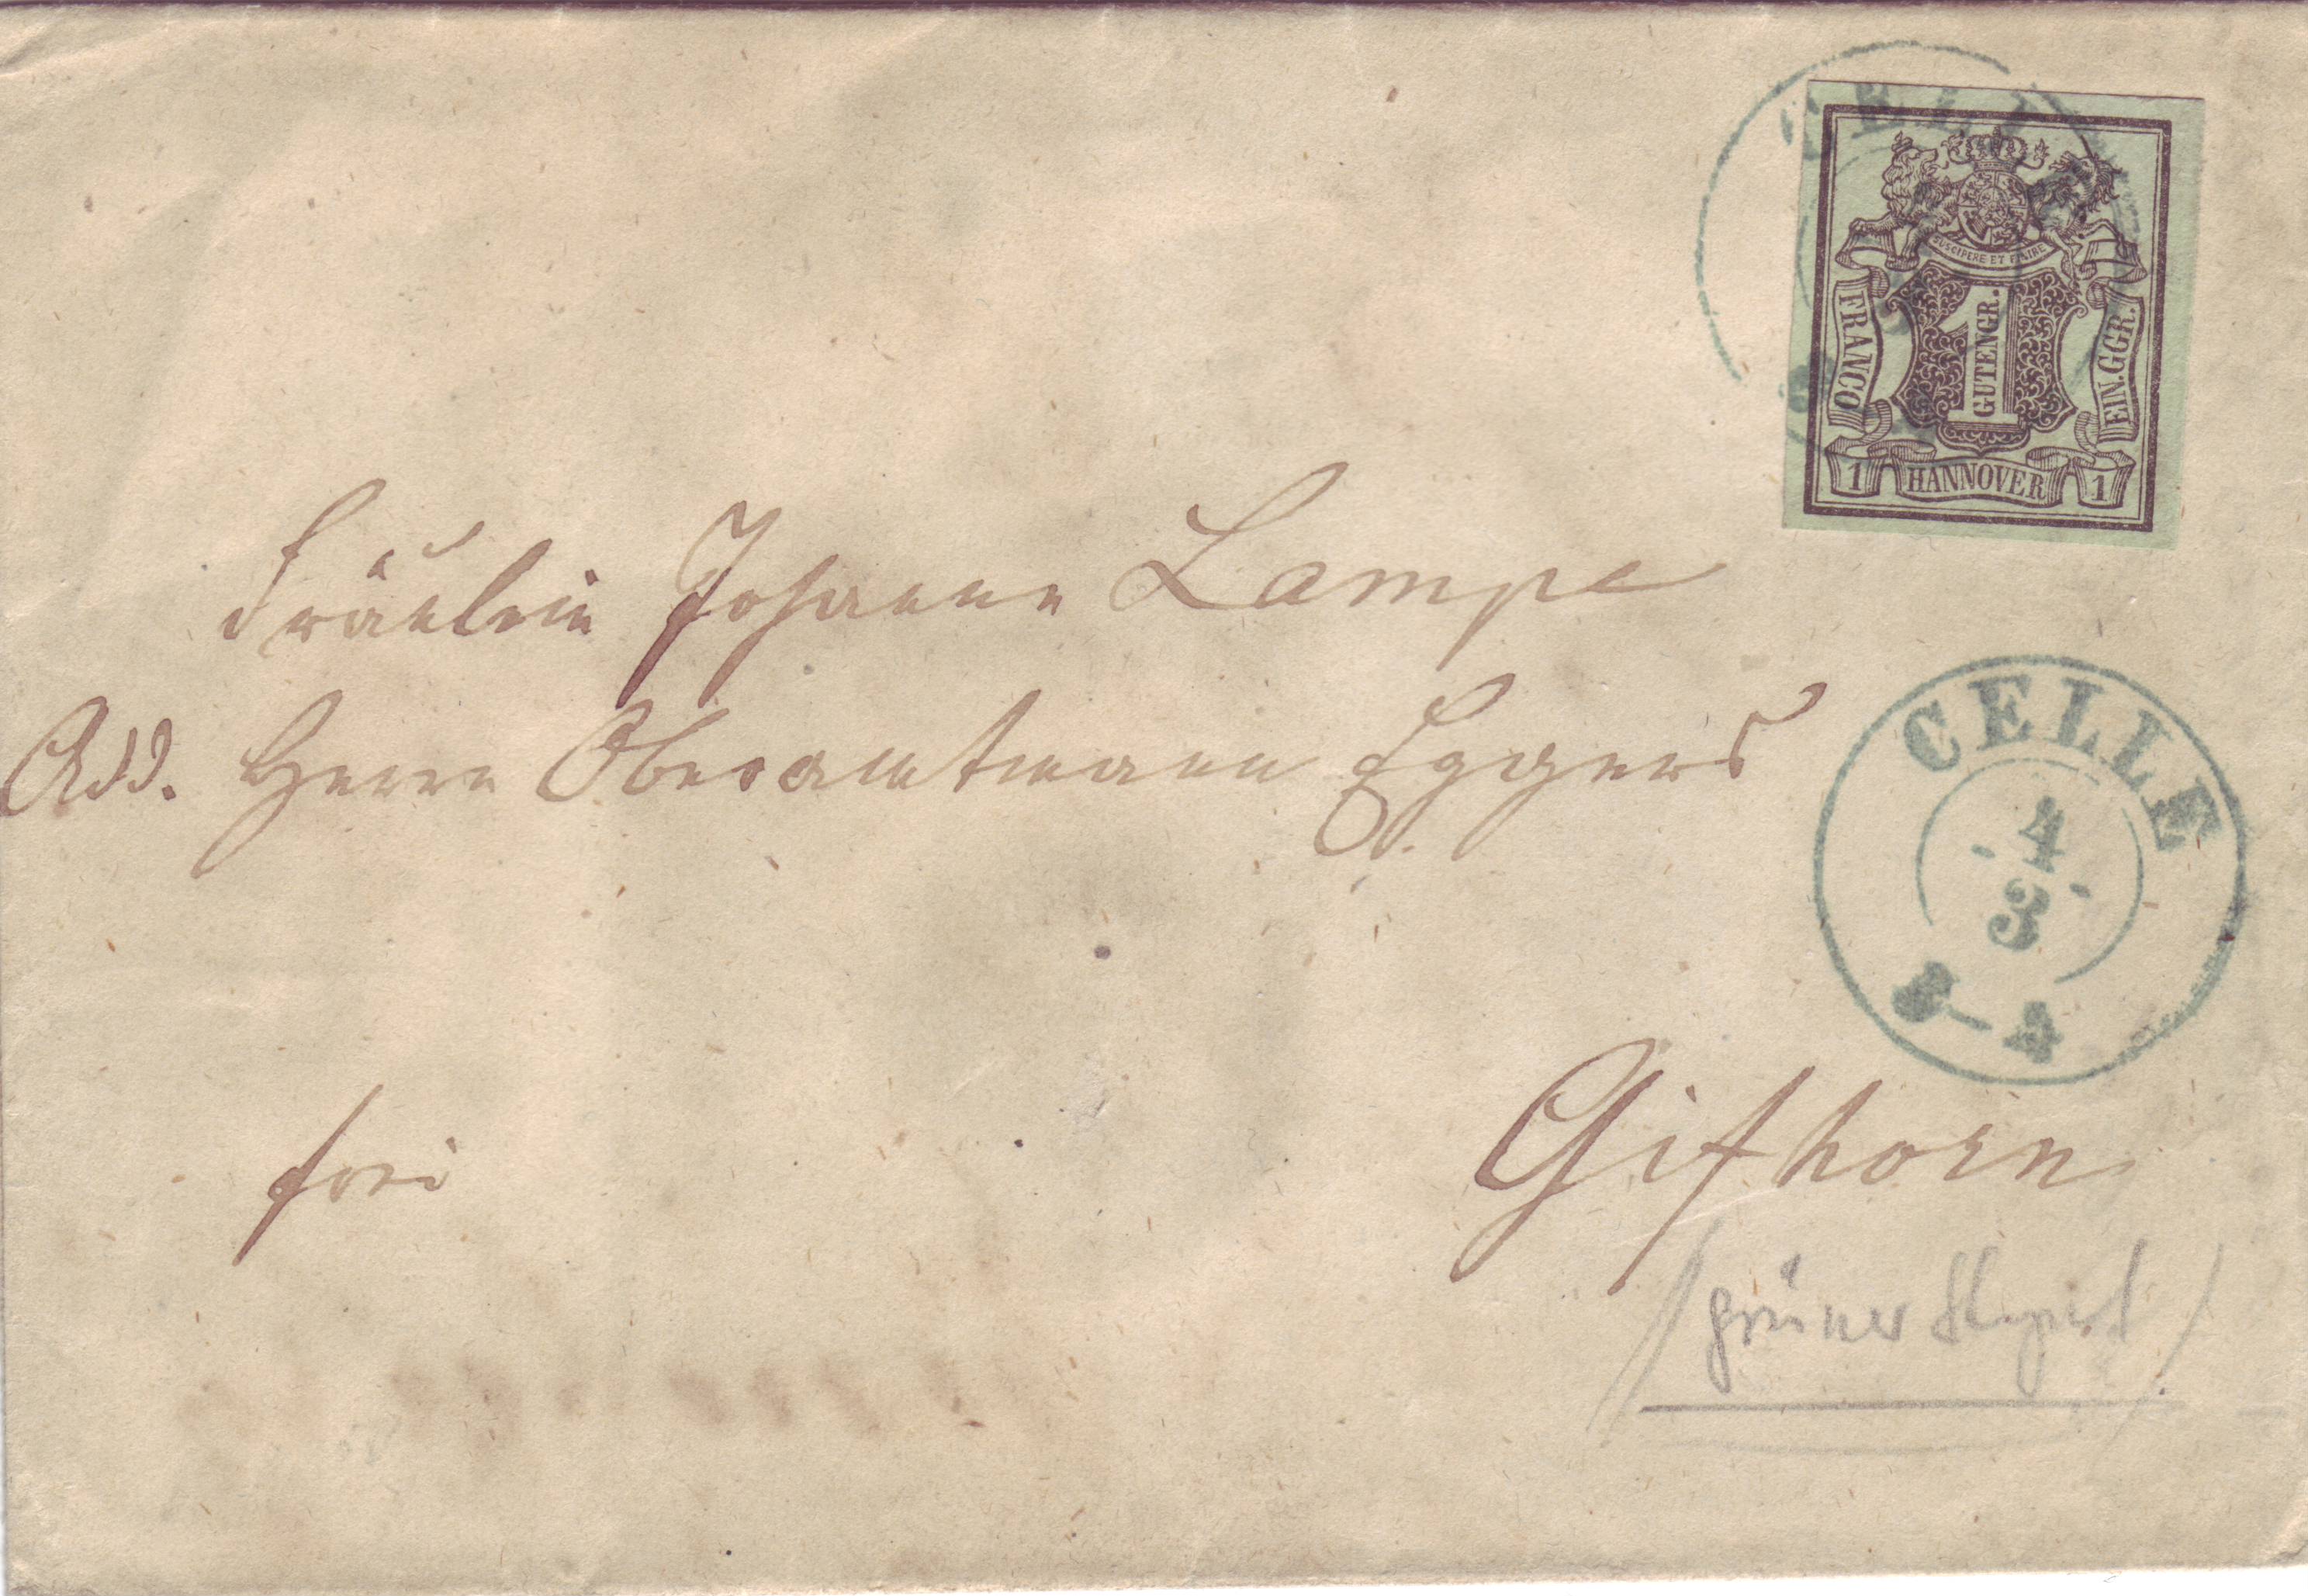 SUSCIPERE ET FINIRE
FRANCO
1 GUTENGR.
EIN.GGR.
1 HANNOVER 1
Fräulein Johanne Lampe
Add. Herrn Oberamtmann Eggers
CELLE
4
3
3-4
frei
Gifhorn
grüner